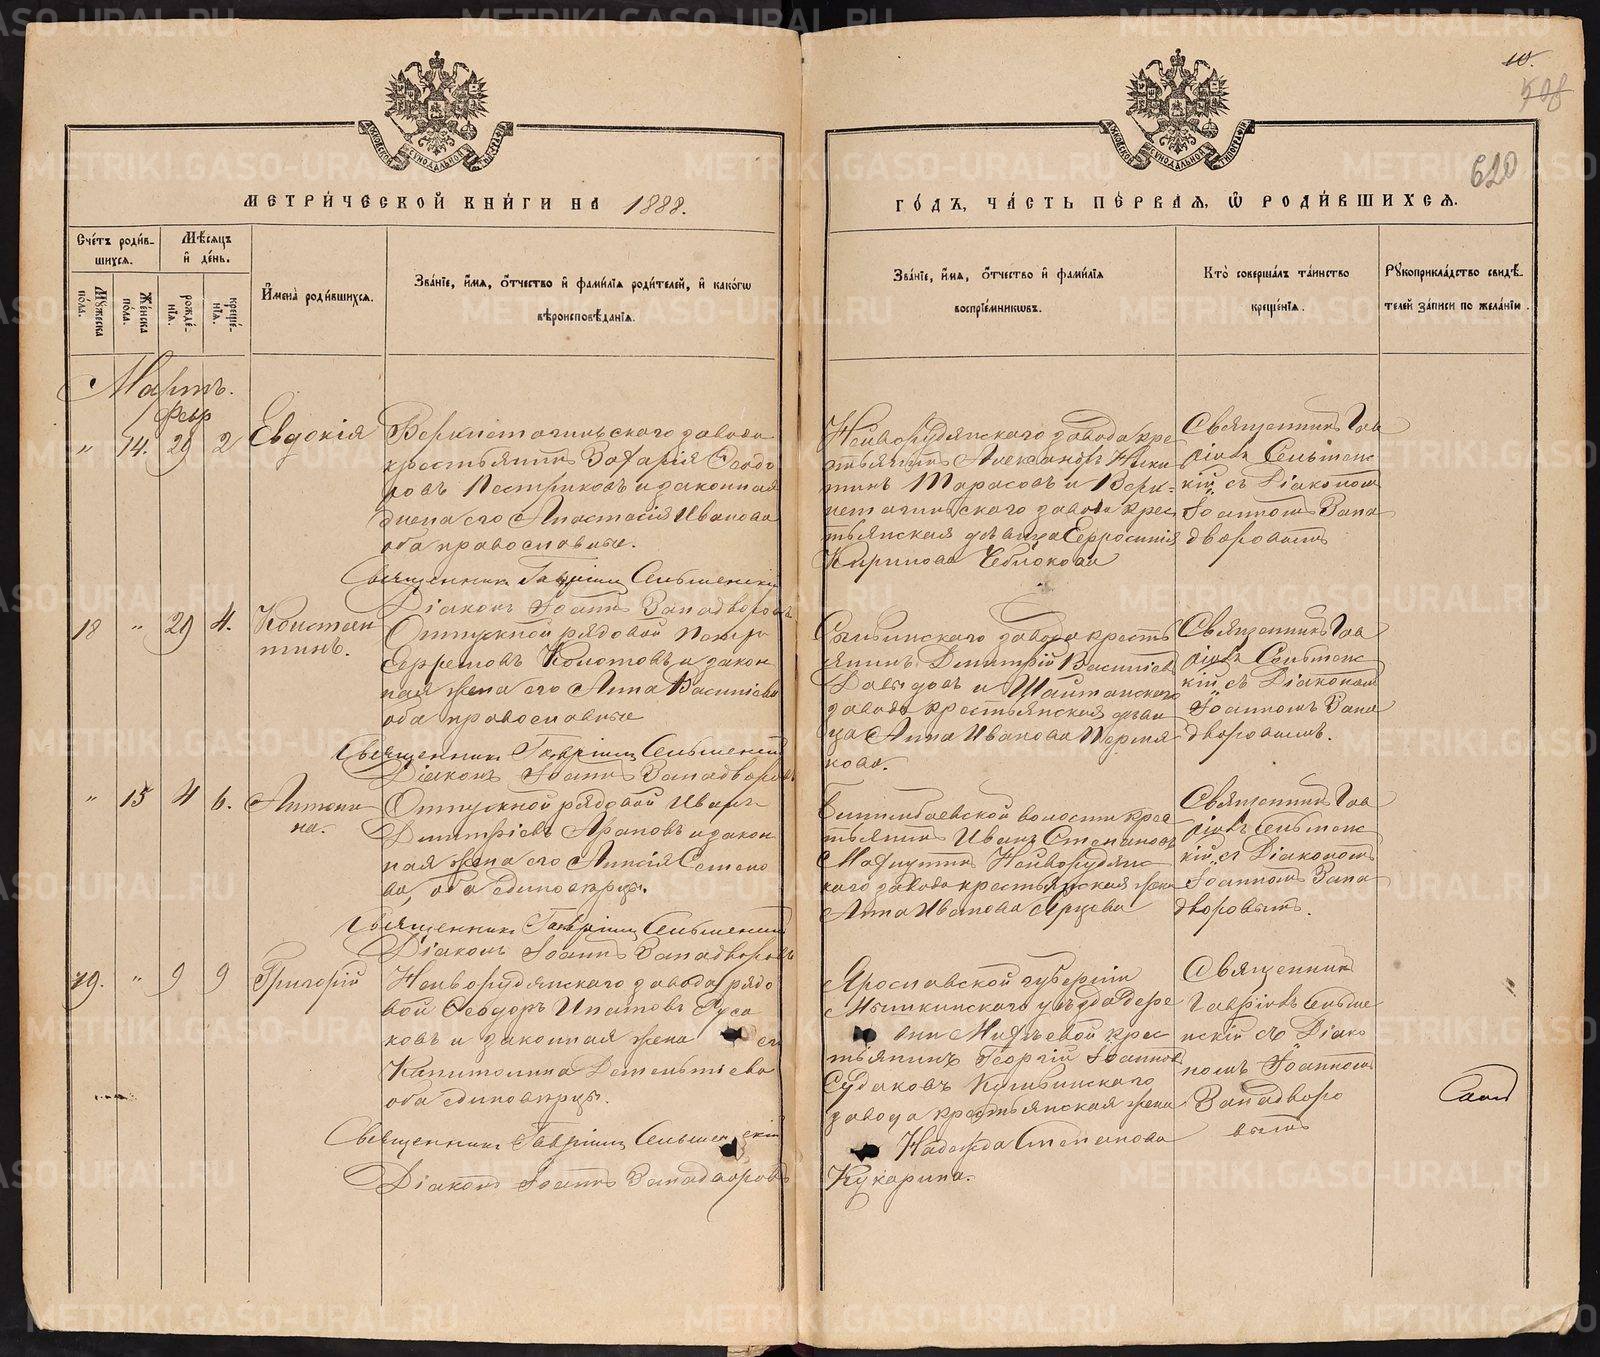 10.
508
620
МЕТРИЧЕСКОЙ КНИГИ НА 1888.
ГОДЪ, ЧАСТЬ ПЕРВАЯ, Ѡ РОДИВШИХСЯ.
Счетъ родив-
шихся.
Мужеска
пола.
Женска
пола.
Мѣсяцъ
и день.
рожде-
нія.
креще-
нія.
Имена родившихся.
Званіе, имя, отчество и фамилія родителей, и какогѡ
вѣроисповѣданія.
Званіе, имя, отчество и фамилія
воспріемникѡвъ.
Кто совершалъ таинство
крещенія.
Рукоприкладство свидѣ-
телей записи по желанію.
Мартъ.
Февр
„ 14. 29 2 Евдокія
Верхнетагильскаго завода
крестьянинъ Захарій Ѳеодо
ровъ Пестриковъ и законная
жена его Анастасія Иванова
оба православные.
Священникъ Гавріилъ Сельменскій
Діаконъ Іоаннъ Западворовъ
Нейворудянскаго завода кре
стьянинъ Александръ Ники
тинъ Тарасовъ и Верх-
нетагильскаго завода крес
тьянская дѣвица Евфросинія
Кирилова
Священникъ Гав
ріилъ Сельменс
кій, съ Діакономъ
Іоанномъ Запа
дворовымъ
18 „ 29 4. Констан
тинъ.
Отпускной рядовой Петръ
Ефремовъ Колотовъ и закон
ная жена его Анна Василіева
оба православные
Священникъ Гавріилъ Сельменскій
Діаконъ Іоаннъ Западворовъ
завода кресть
янинъ Димитрій Василіевъ
Давыдовъ и Шайтанскаго
завода крестьянская дѣви
ца Анна Иванова Пермя
кова.
Священникъ Гав
ріилъ Сельменс
кій, съ Діакономъ
Іоанномъ Запа
дворовымъ.
„ 15 4 6. Антони
на.
Отпускной рядовой Иванъ
Димитріевъ Араповъ и закон
ная жена его Анисія Семено
ва, оба единовѣрцы.
Священникъ Гавріилъ Сельменскій
Діаконъ Іоаннъ Западворовъ
волости крес
тьянинъ Иванъ Степановъ
Нейворудянс
каго завода крестьянская жена
Анна Иванова
Священникъ Гав
ріилъ Сельменс
кій, съ Діакономъ
Іоанномъ Запа
дворовымъ.
19. „ 9 9 Григорій
Нейворудянскаго завода рядо
вой Ѳеодоръ Ипатовъ Руса
ковъ и законная жена его
Капитолина Дементьева
оба единовѣрцы.
Священникъ Гавріилъ Сельменскій
Діаконъ Іоаннъ Западворовъ
Ярославской губерніи
Мышкинскаго уѣзда дере
вни крес
тьянинъ Георгій Іоанновъ
Судаковъ
завода крестьянская жена
Надежда Степанова
Кукарина.
Священникъ
Гавріилъ Сельме
нскій съ Діако
номъ Іоанномъ
Западворо
вымъ